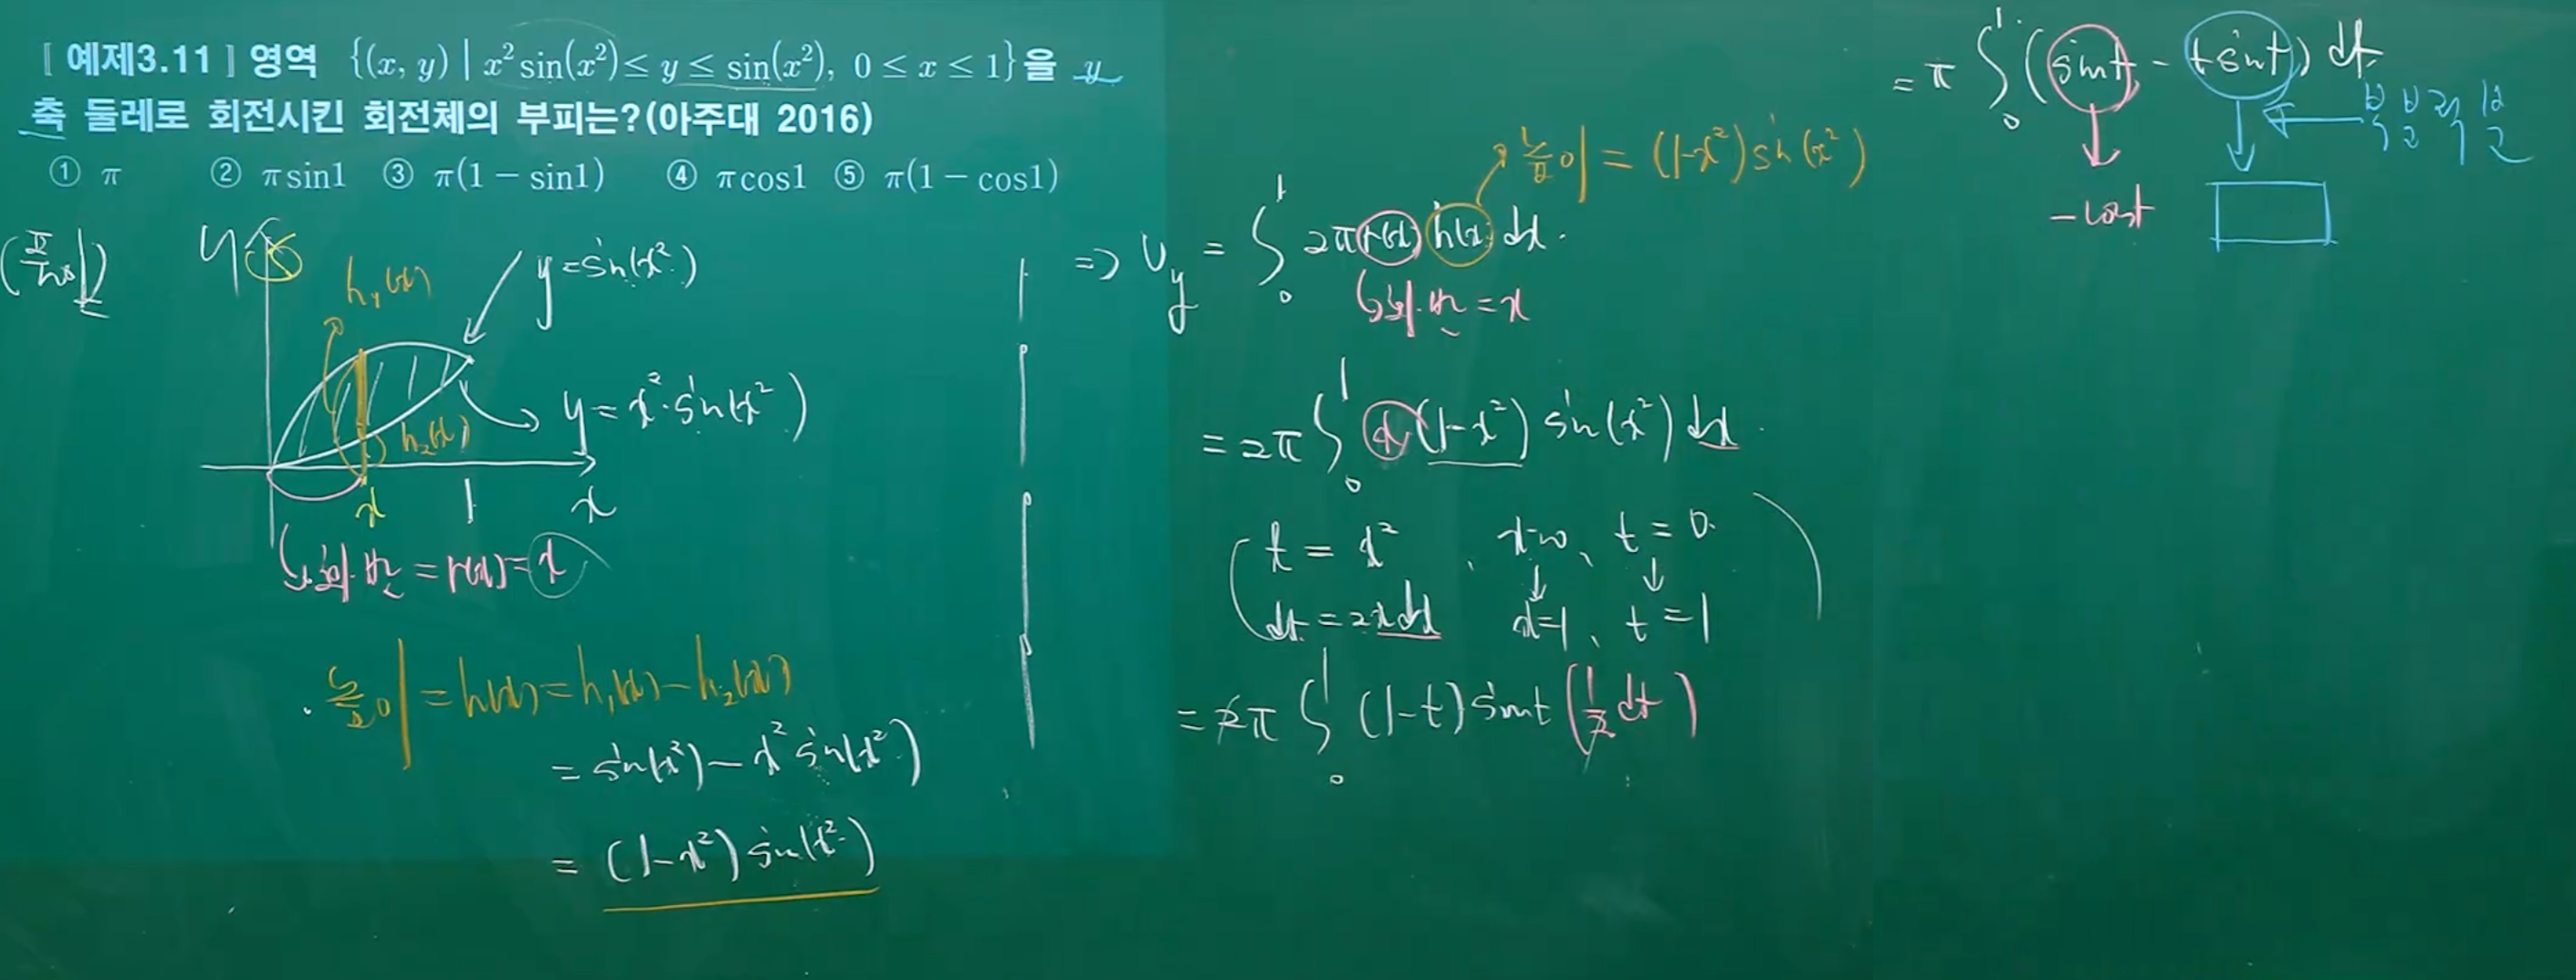 [ 예제3.11 ] 영역 {(x, y) | x² sin(x²) ≤ y ≤ sin(x²), 0 ≤ x ≤ 1}을 y
축 둘레로 회전시킨 회전체의 부피는?(아주대 2016)
① π ② π sin1 ③ π(1 − sin1) ④ π cos1 ⑤ π(1 − cos1)
(풀이)
y
h₁(x)
y = sin(x²)
y = x²·sin(x²)
h₂(x)
x 1 x
회.반 = r(x) = x
높이 = h(x) = h₁(x) − h₂(x)
= sin(x²) − x² sin(x²)
= (1−x²) sin(x²)
높이 = (1−x²) sin(x²)
⇒ V_y = ∫₀¹ 2π r(x) h(x) dx.
회.반 = x
= 2π ∫₀¹ x (1−x²) sin(x²) dx.
t = x², x=0, t = 0.
dt = 2x dx x=1, t = 1
= 2π ∫₀¹ (1−t) sin t (1/2 dt)
= π ∫₀¹ (sin t − t sin t) dt
부분적분
−cos t